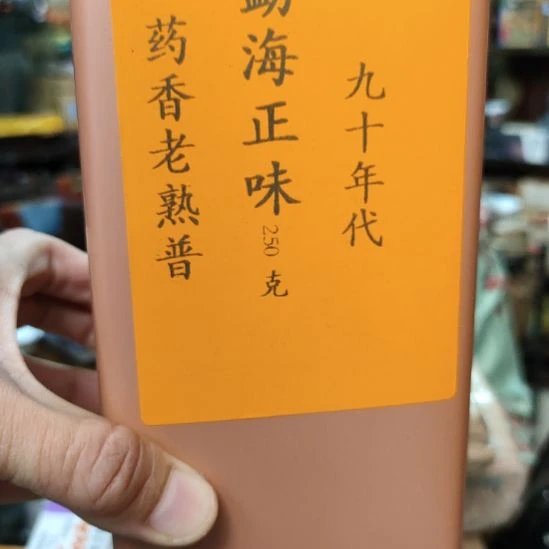 九十年代
勐海正味
250克
药香老熟普